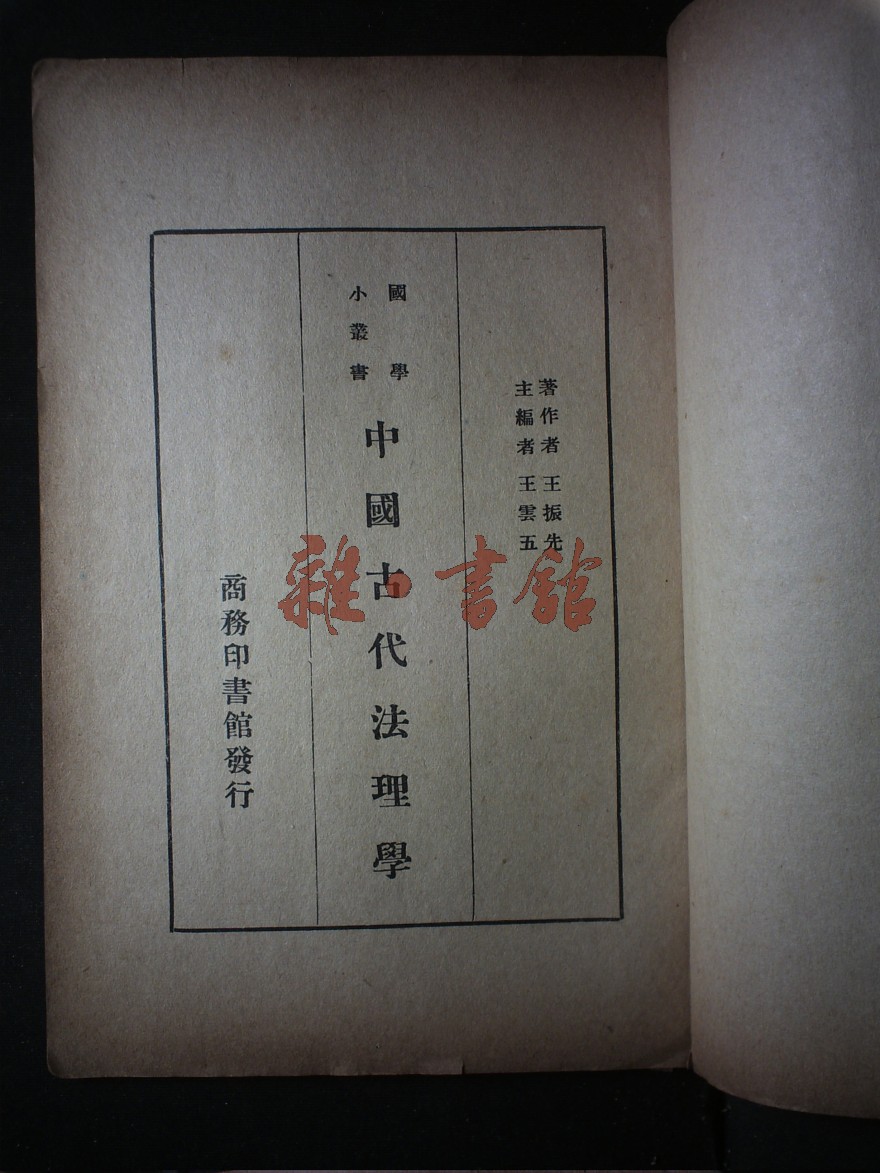 著作者 王振先
主編者 王雲五
國學
小叢書
中國古代法理學
商務印書館發行
雜·書館